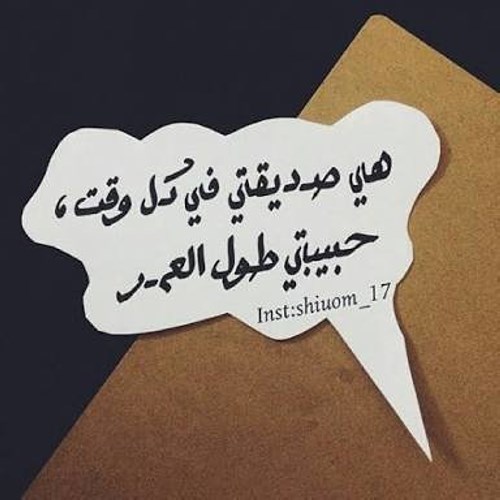 هي صديقتي في كل وقت ،
حبيبتي طول العمر
Inst:shiuom_17